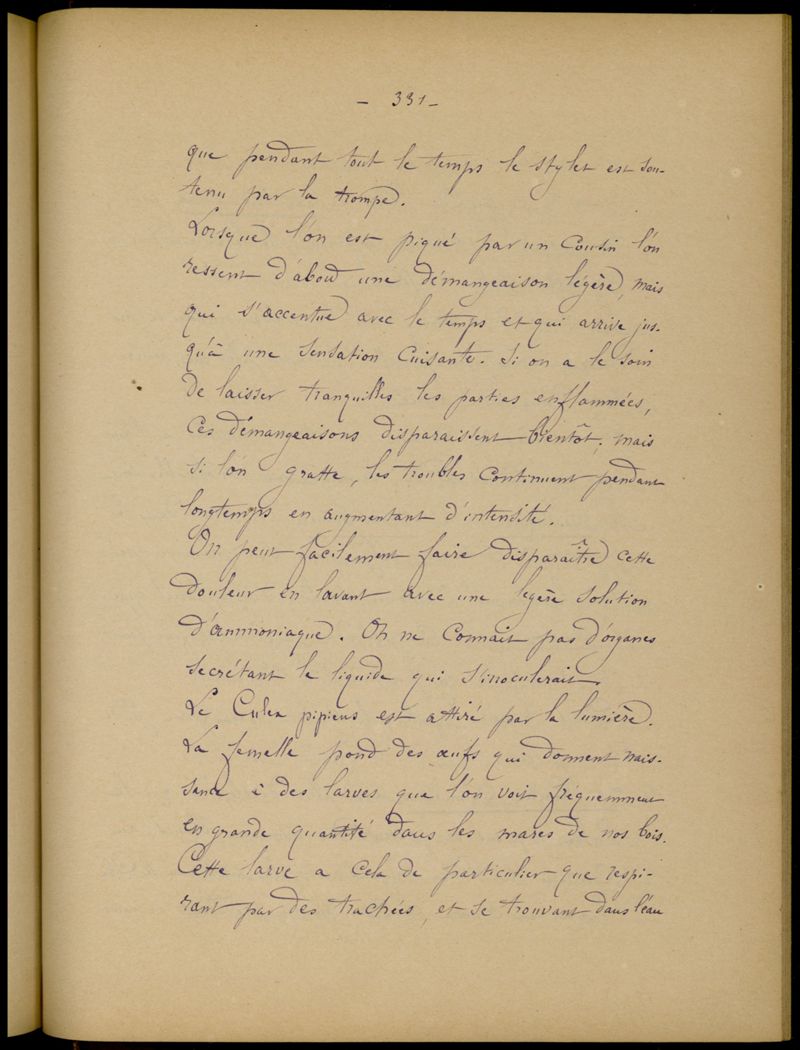 - 331 -
que pendant tout le temps le stylet est sou-
tenu par la trompe.
Lorsque l'on est piqué par un Cousin l'on
ressent d'abord une démangeaison légère, mais
qui s'accentue avec le temps et qui arrive jus-
qu'à une sensation cuisante. Si on a le soin
de laisser tranquilles les parties enflammées,
ces démangeaisons disparaissent bientôt; mais
si l'on gratte, les troubles continuent pendant
longtemps en augmentant d'intensité.
On peut facilement faire disparaître cette
douleur en lavant avec une légère solution
d'ammoniaque. On ne connait pas d'organes
secrétant le liquide qui s'inoculerait.
Le Culex pipiens est attiré par la lumière.
La femelle pond des œufs qui donnent nais-
sance à des larves que l'on voit fréquemment
en grande quantité dans les mares de nos bois.
Cette larve a cela de particulier que respi-
rant par des trachées, et se trouvant dans l'eau